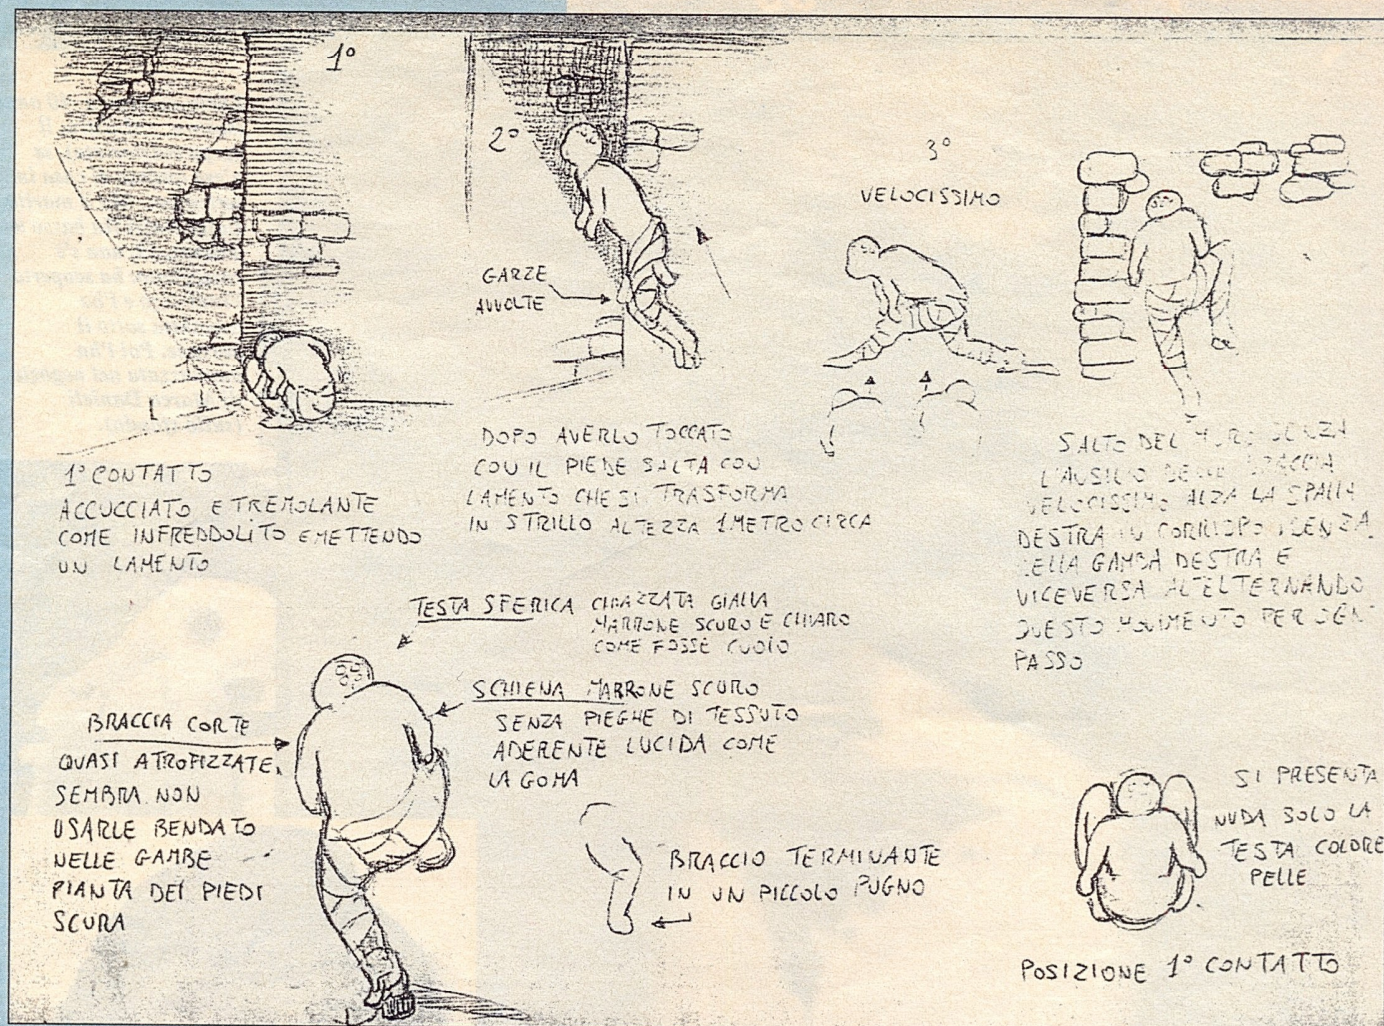 1°
1° CONTATTO
ACCUCCIATO E TREMOLANTE
COME INFREDDOLITO EMETTENDO
UN LAMENTO
2°
GARZE
AVVOLTE
DOPO AVERLO TOCCATO
CON IL PIEDE SALTA CON
LAMENTO CHE SI TRASFORMA
IN STRILLO ALTEZZA 1 METRO CIRCA
3°
VELOCISSIMO
SALTO DEL MURO SENZA
L'AUSILIO DELLE BRACCIA
VELOCISSIMO ALZA LA SPALLA
DESTRA IN CORRISPONDENZA
DELLA GAMBA DESTRA E
VICEVERSA
QUESTO MOVIMENTO PER OGNI
PASSO
TESTA SFERICA CHIAZZATA GIALLA
MARRONE SCURO E CHIARO
COME FOSSE CUOIO
SCHIENA MARRONE SCURO
SENZA PIEGHE DI TESSUTO
ADERENTE LUCIDA COME
LA GOMA
BRACCIA CORTE
QUASI ATROFIZZATE,
SEMBRA NON
USARLE BENDATO
NELLE GAMBE
PIANTA DEI PIEDI
SCURA
BRACCIO TERMINANTE
IN UN PICCOLO PUGNO
SI PRESENTA
NUDA SOLO LA
TESTA COLORE
PELLE
POSIZIONE 1° CONTATTO